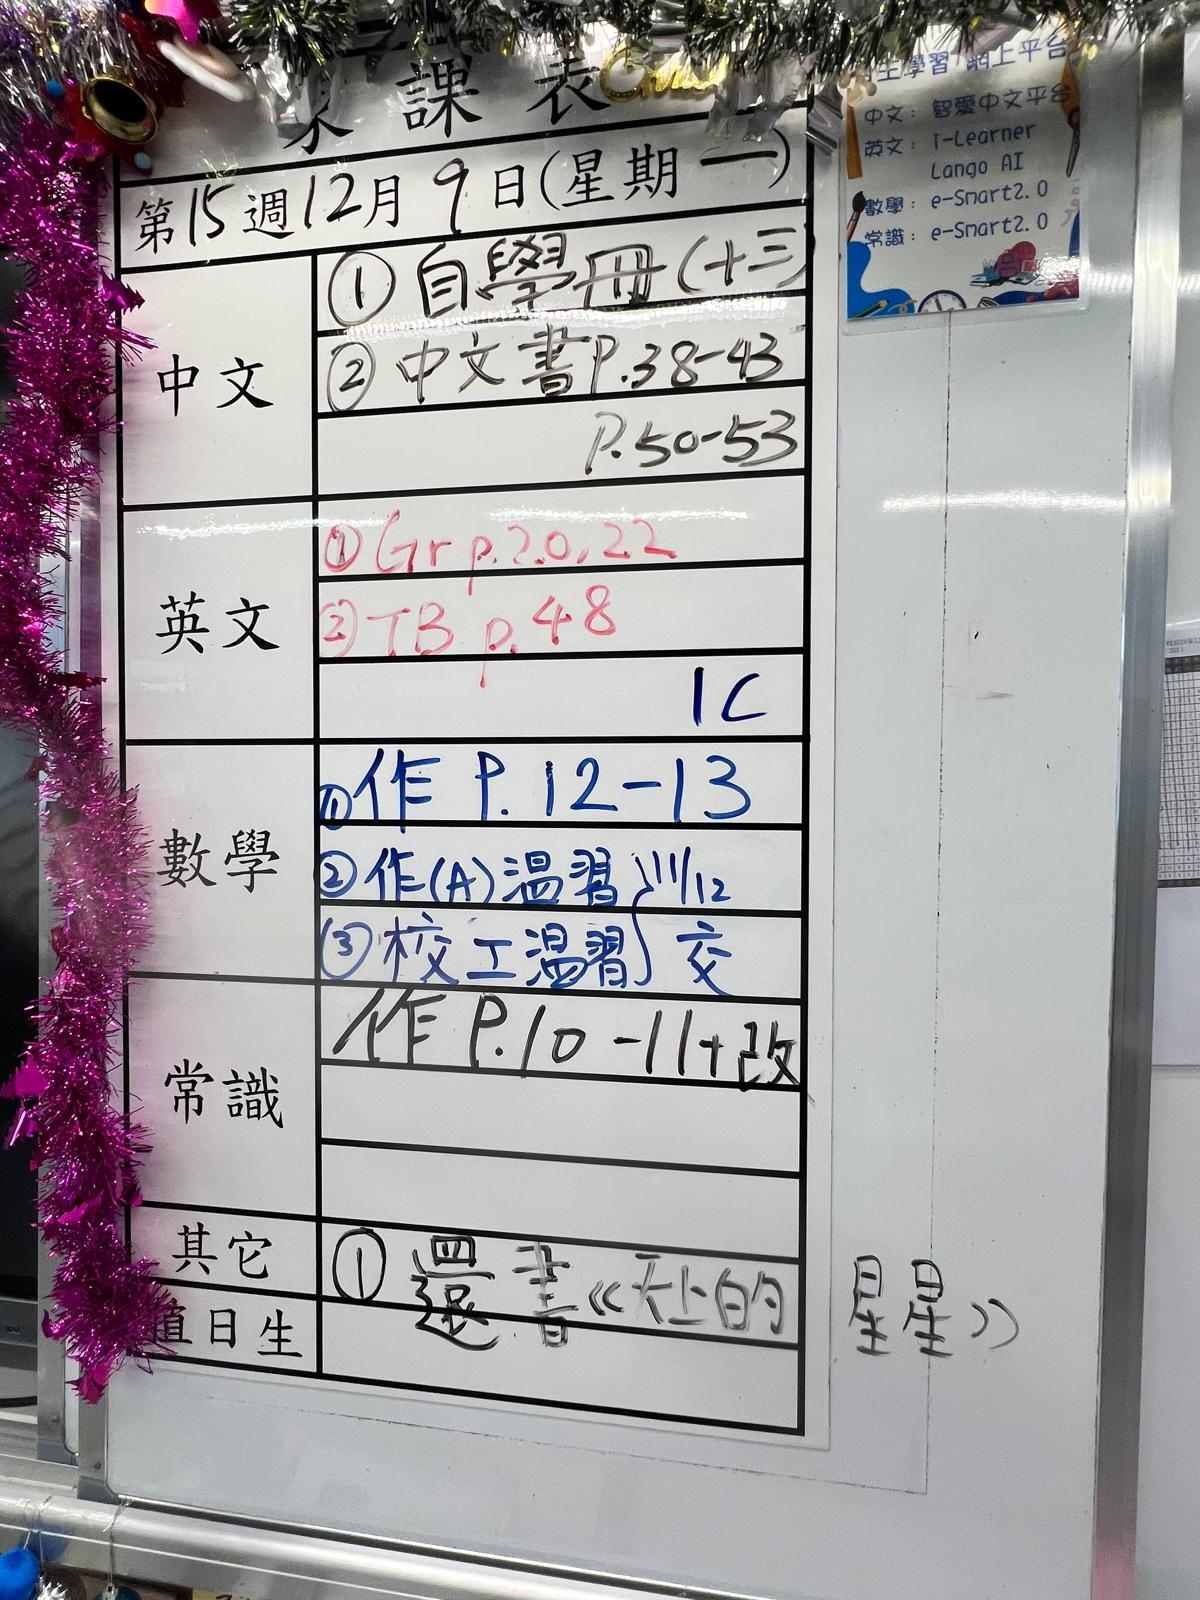 家課表
第15週12月9日(星期一)
中文
① 自學冊(十三)
② 中文書P.38-43
P.50-53
英文
① Gr p.20,22
② TB p.48
1C
數學
①作 P.12-13
②作(A)温習
11/12
③校工温習
交
常識
作 P.10-11+改
其它
① 還書《天上的星星》
值日生
自主學習網上平台
中文：智愛中文平台
英文：i-Learner
Lango AI
數學：e-Smart2.0
常識：e-Smart2.0